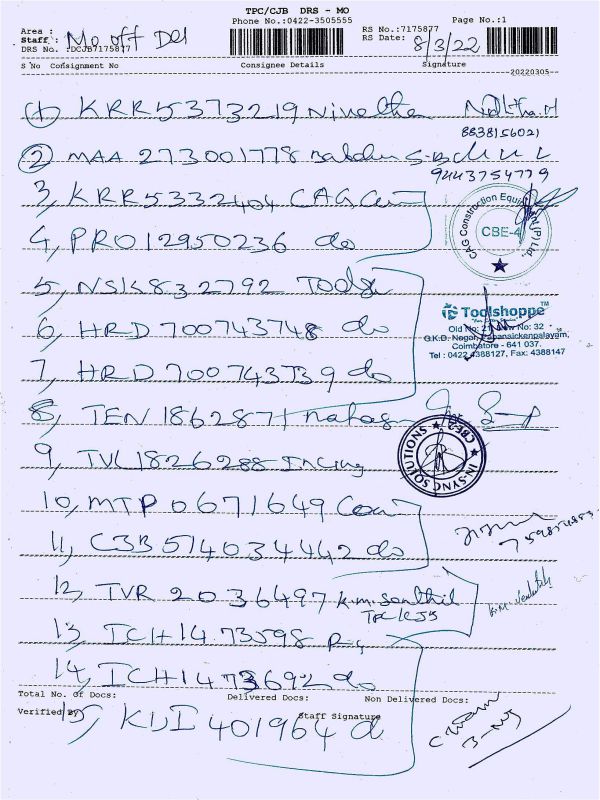 TPC/CJB DRS - MO
Phone No.:0422-3505555
Page No.:1
Area :
Staff : Mo off Del
DRS No. :DCJB7175877
RS No.:7175877
RS Date: 8/3/22
S No Consignment No Consignee Details Signature
20220305--
1) KRR5373219 Nivetha
8838156021
2) MAA 273001778
9443754779
3, KRR5332404 CAG
CAG Construction Equipment (P) Ltd.
CBE-4
4, PRO12950236 do
5, NSK832792 Tools
Toolshoppe™
Old No: 21, New No: 32
G.K.D. Nagar, Papanaickenpalayam,
Coimbatore - 641 037.
Tel : 0422 4388127, Fax: 4388147
6, HRD 700743748 do
7, HRD 700743739 do
8, TEN 186287
IN-SYNC SOLUTIONS
CBE-2
9, TVL1826288
10, MTP 0671649
11, CJB574034442 do
12, TVR 2036497 K.m. Senthil
13, ICH1473598
14, ICH1473692 do
Total No. Of Docs: Delivered Docs: Non Delivered Docs:
Verified By Staff Signature
15, 401964 d